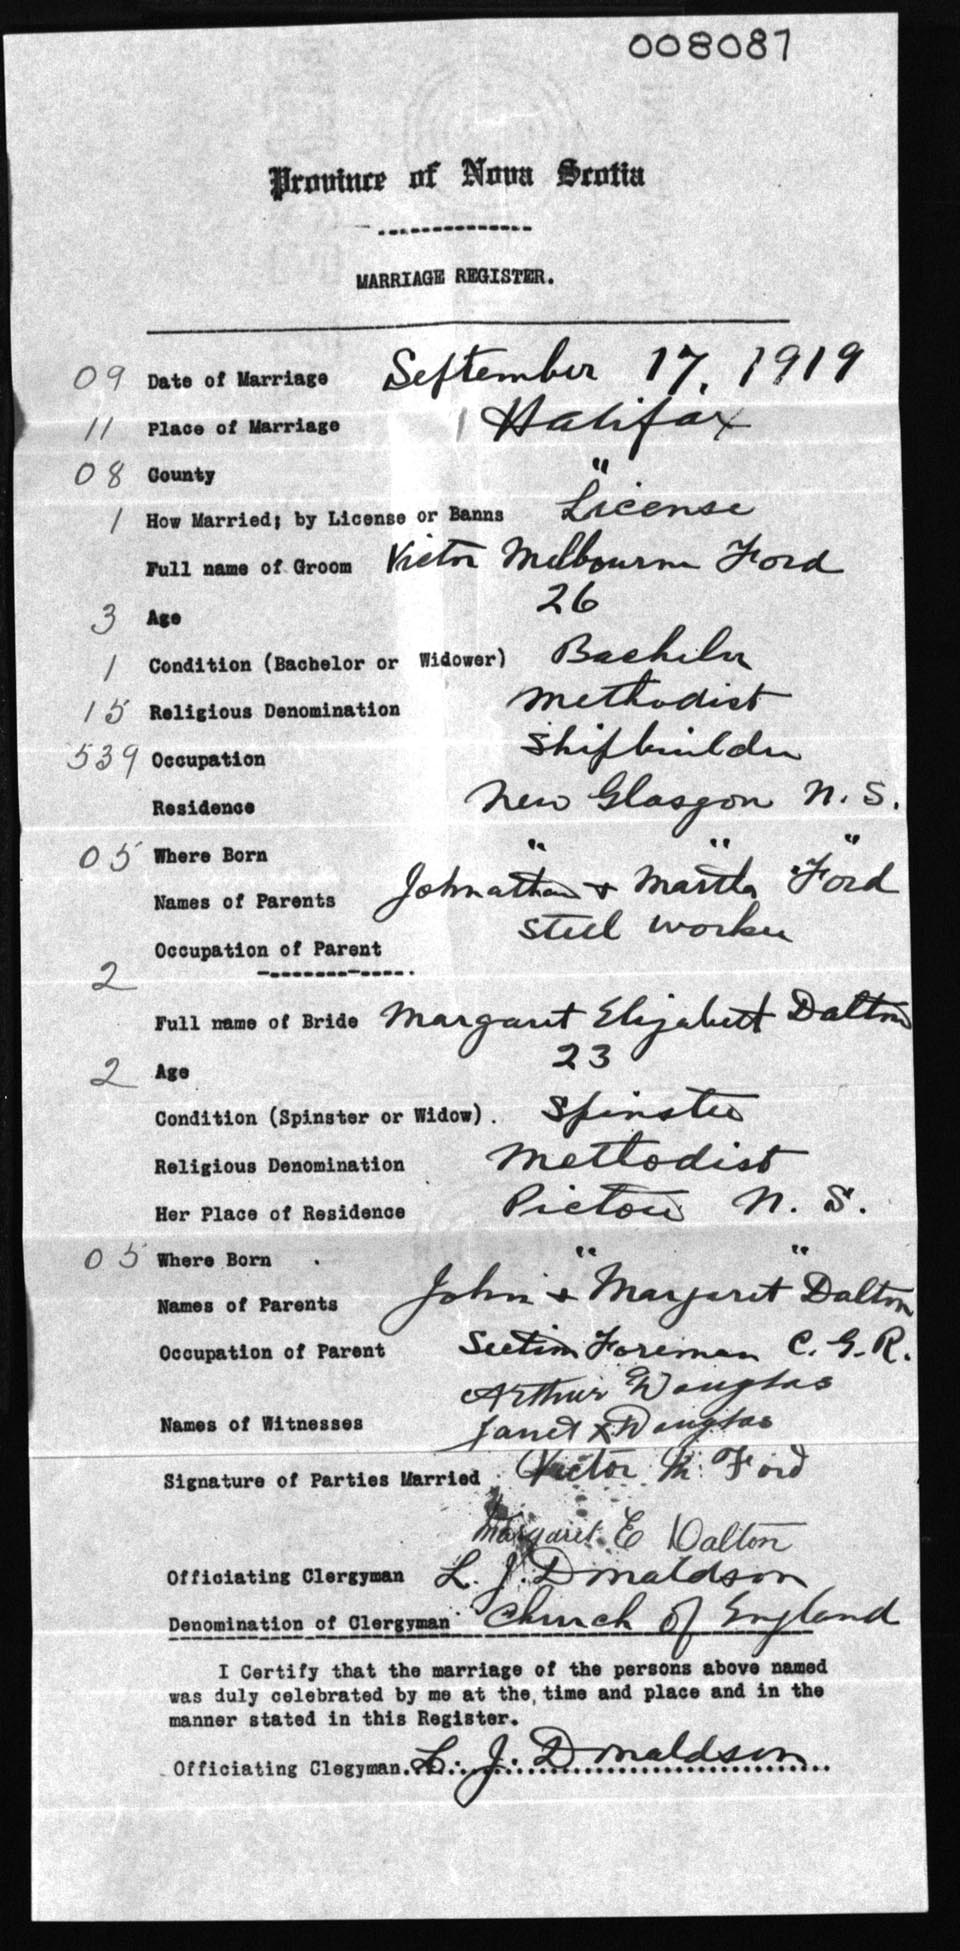 008087
Province of Nova Scotia
MARRIAGE REGISTER.
09 Date of Marriage September 17, 1919
11 Place of Marriage Halifax
08 County "
1 How Married; by License or Banns License
Full name of Groom Victor Melbourne Ford
3 Age 26
1 Condition (Bachelor or Widower) Bachelor
15 Religious Denomination Methodist
539 Occupation Shipbuilder
Residence New Glasgow N. S.
05 Where Born " " "
Names of Parents Johnathan & Martha Ford
Occupation of Parent Steel worker
2
Full name of Bride Margaret Elizabeth Dalton
2 Age 23
Condition (Spinster or Widow). Spinster
Religious Denomination Methodist
Her Place of Residence Pictou N. S.
05 Where Born " "
Names of Parents John & Margaret Dalton
Occupation of Parent Section Foreman C. G. R.
Arthur W Douglas
Names of Witnesses Janet Douglas
Signature of Parties Married Victor M. Ford
Margaret E Dalton
Officiating Clergyman L. J. Donaldson
Denomination of Clergyman Church of England
I Certify that the marriage of the persons above named
was duly celebrated by me at the time and place and in the
manner stated in this Register.
Officiating Clegyman. L. J. Donaldson